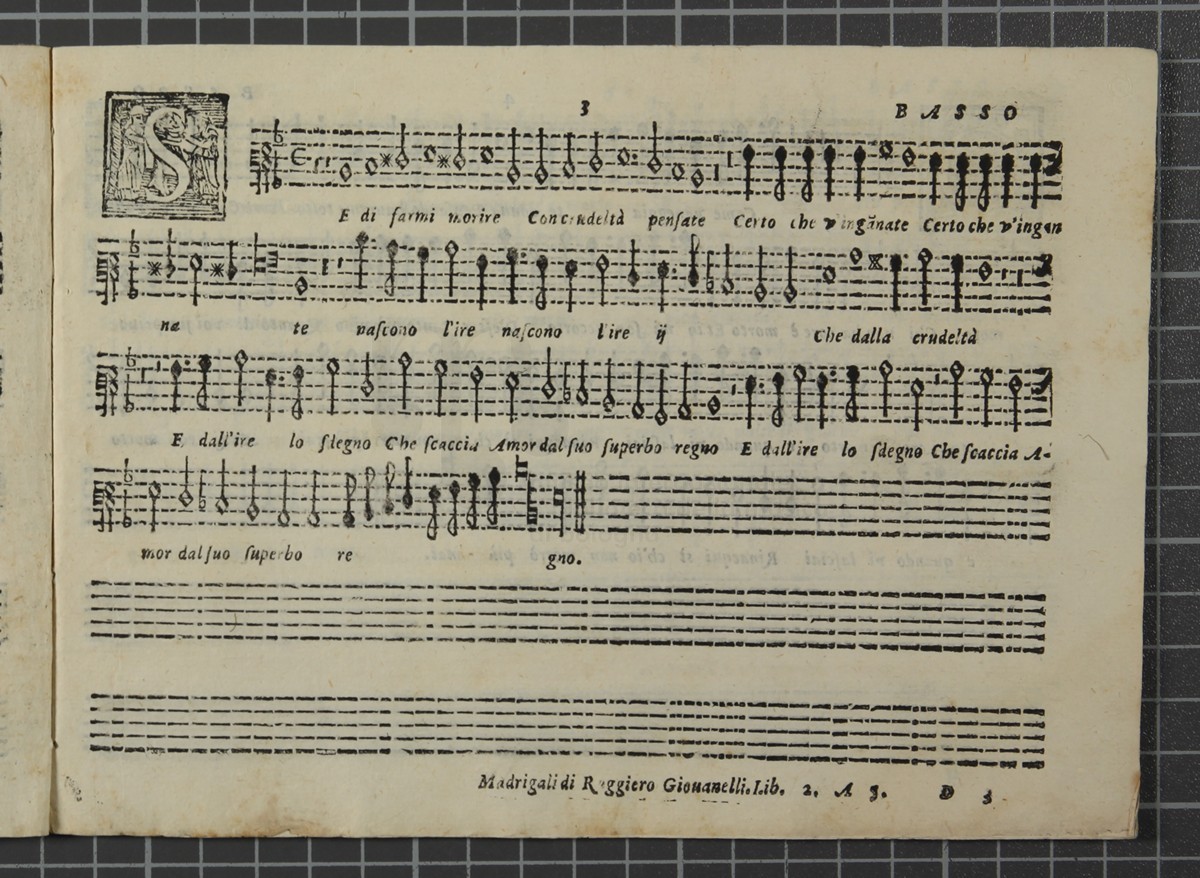 3 BASSO
S
E di farmi morire Con crudeltà pensate Certo che v'ingãnate Certo che v'ingan
na te nascono l'ire nascono l'ire ij Che dalla crudeltà
E dall'ire lo sdegno Che scaccia Amor dal suo superbo regno E dall'ire lo sdegno Che scaccia A-
mor dal suo superbo re gno.
Madrigali di Ruggiero Giouanelli. Lib. 2. A 3. D 3